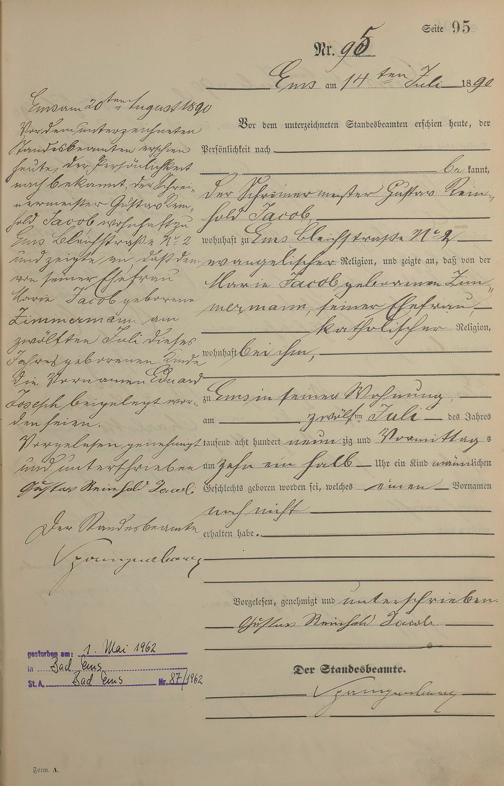 Seite 95
Nr. 95
Ems am 14 ten Juli 1890
Vor dem unterzeichneten Standesbeamten erschien heute, der
Persönlichkeit nach
be kannt,
der Schreinermeister Gustav Rein-
hold Jacob,
wohnhaft zu Ems Bleichstraße No 2,
evangelischer Religion, und zeigte an, daß von der
Marie Jacob geborenen Zim-
mermann, seiner Ehefrau,
katholischer Religion,
wohnhaft bei ihm,
zu Ems in seiner Wohnung
am zwölften Juli des Jahres
tausend acht hundert neun zig und Vormittags
um zehn ein halb Uhr ein Kind männlichen
Geschlechts geboren worden sei, welches einen Vornamen
noch nicht
erhalten habe.
Vorgelesen, genehmigt und unterschrieben
Gustav Reinhold Jacob
Der Standesbeamte.
Spangenberg
Ems am 20ten August 1890
Vor dem unterzeichneten
Standesbeamten erschien
heute, der Persönlichkeit
nach bekannt, der Schrei-
nermeister Gustav Rein-
hold Jacob wohnhaft zu
Ems Bleichstraße No 2
und zeigte an, daß dem
von seiner Ehefrau
Marie Jacob geborene
Zimmermann am
zwölften Juli dieses
Jahres geborenen Kinde
die Vornamen Eduard
Joseph beigelegt wor-
den seien.
Vorgelesen, genehmigt
und unterschrieben
Gustav Reinhold Jacob
Der Standesbeamte
Spangenberg
gestorben am: 1. Mai 1962
in Bad Ems
St. A. Bad Ems Nr. 87/1962
Form. A.